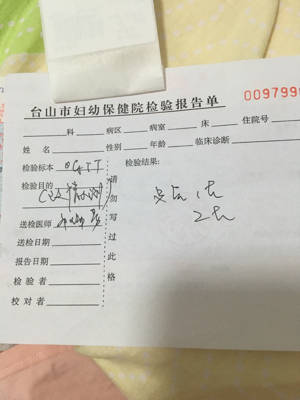 台山市妇幼保健院检验报告单
009799
科 病区 病室 床 住院号
姓名 性别 年龄 临床诊断
检验标本
检验结果:
检验目的
送检医师
送检日期
报告日期
检验者
校对者
请勿写过此格